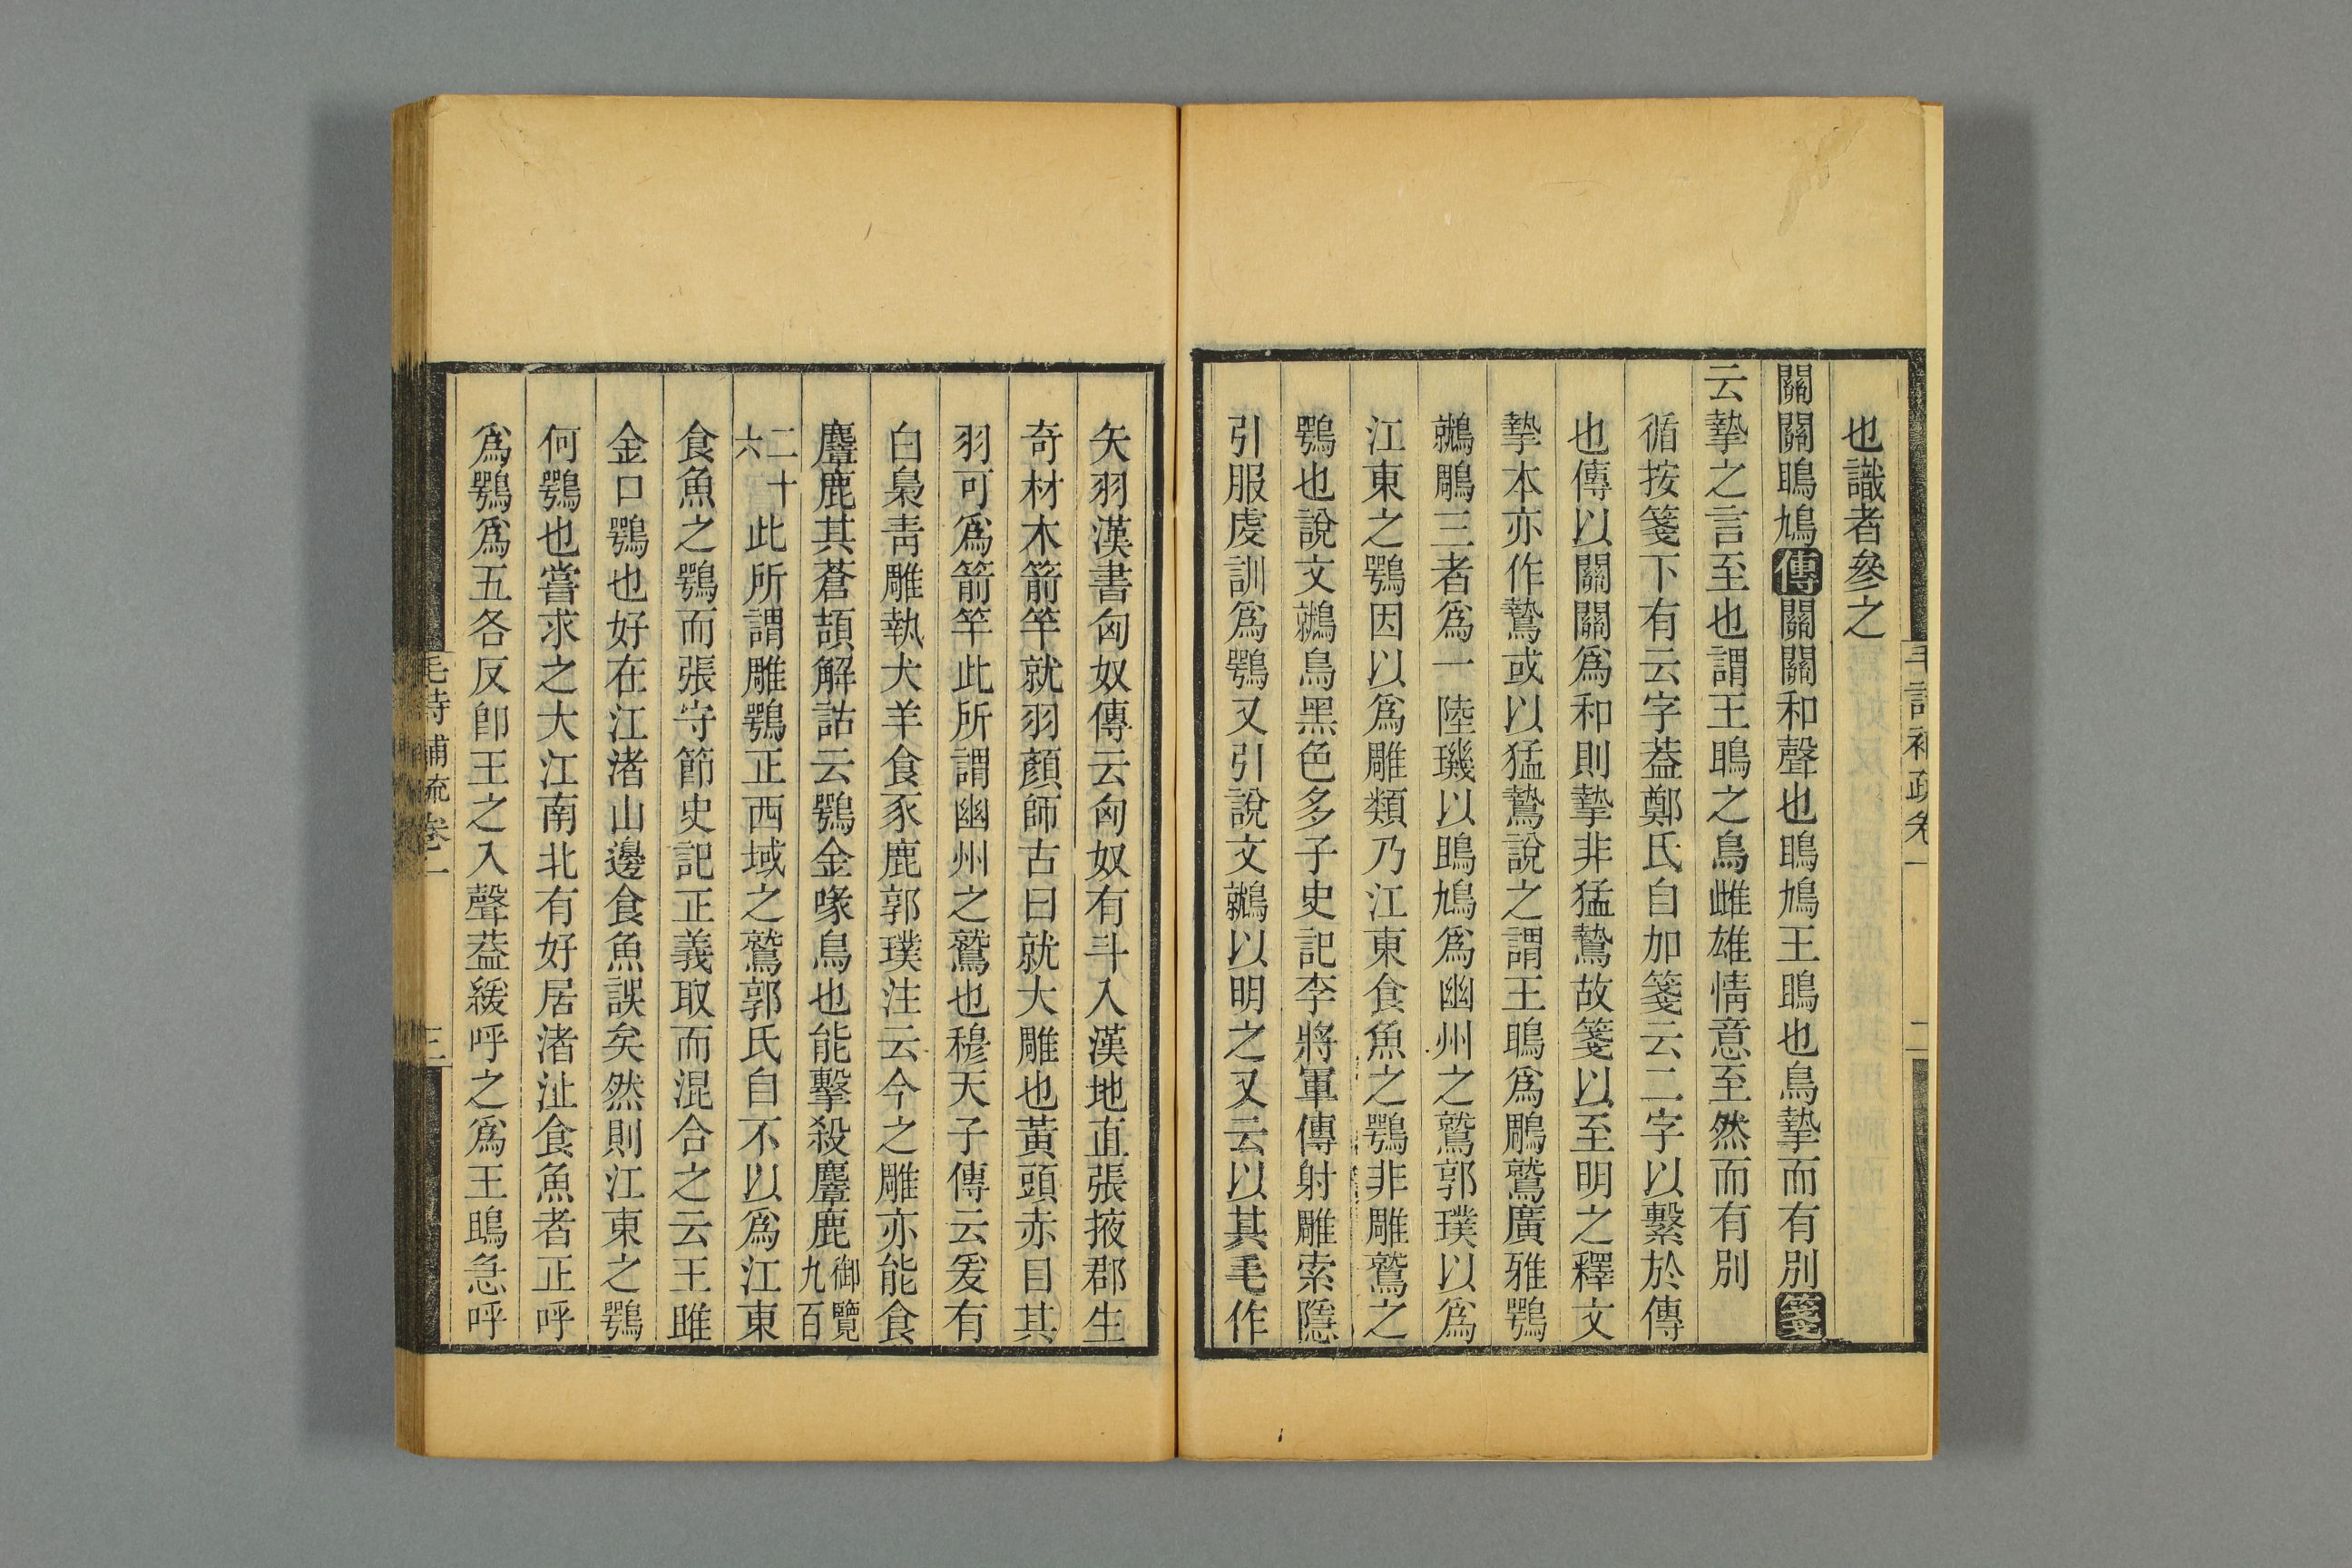 也識者參之
關關鴡鳩傳關關和聲也鴡鳩王鴡也鳥摯而有別箋
云摯之言至也謂王鴡之鳥雌雄情意至然而有別
循按箋下有云字葢鄭氏自加箋云二字以繫於傳
也傳以關關爲和則摯非猛鷙故箋以至明之釋文
摯本亦作鷙或以猛鷙說之謂王鴡爲鵰鷲廣雅鶚
鷻鵰三者爲一陸璣以鴡鳩爲幽州之鷲郭璞以爲
江東之鶚因以爲雕類乃江東食魚之鶚非雕鷲之
鶚也說文鷻鳥黑色多子史記李將軍傳射雕索隱
引服虔訓爲鶚又引說文鷻以明之又云以其毛作
矢羽漢書匈奴傳云匈奴有斗入漢地直張掖郡生
奇材木箭竿就羽顏師古曰就大雕也黃頭赤目其
羽可爲箭竿此所謂幽州之鷲也穆天子傳云爰有
白梟靑雕執犬羊食豕鹿郭璞注云今之雕亦能食
麞鹿其蒼頡解詁云鶚金喙鳥也能擊殺麞鹿御覽九百
二十六此所謂雕鶚正西域之鷲郭氏自不以爲江東
食魚之鶚而張守節史記正義取而混合之云王雎
金口鶚也好在江渚山邊食魚誤矣然則江東之鶚
何鶚也嘗求之大江南北有好居渚沚食魚者正呼
爲鶚爲五各反卽王之入聲葢緩呼之爲王鴡急呼
毛詩補疏卷一
三
毛詩補疏卷一
二